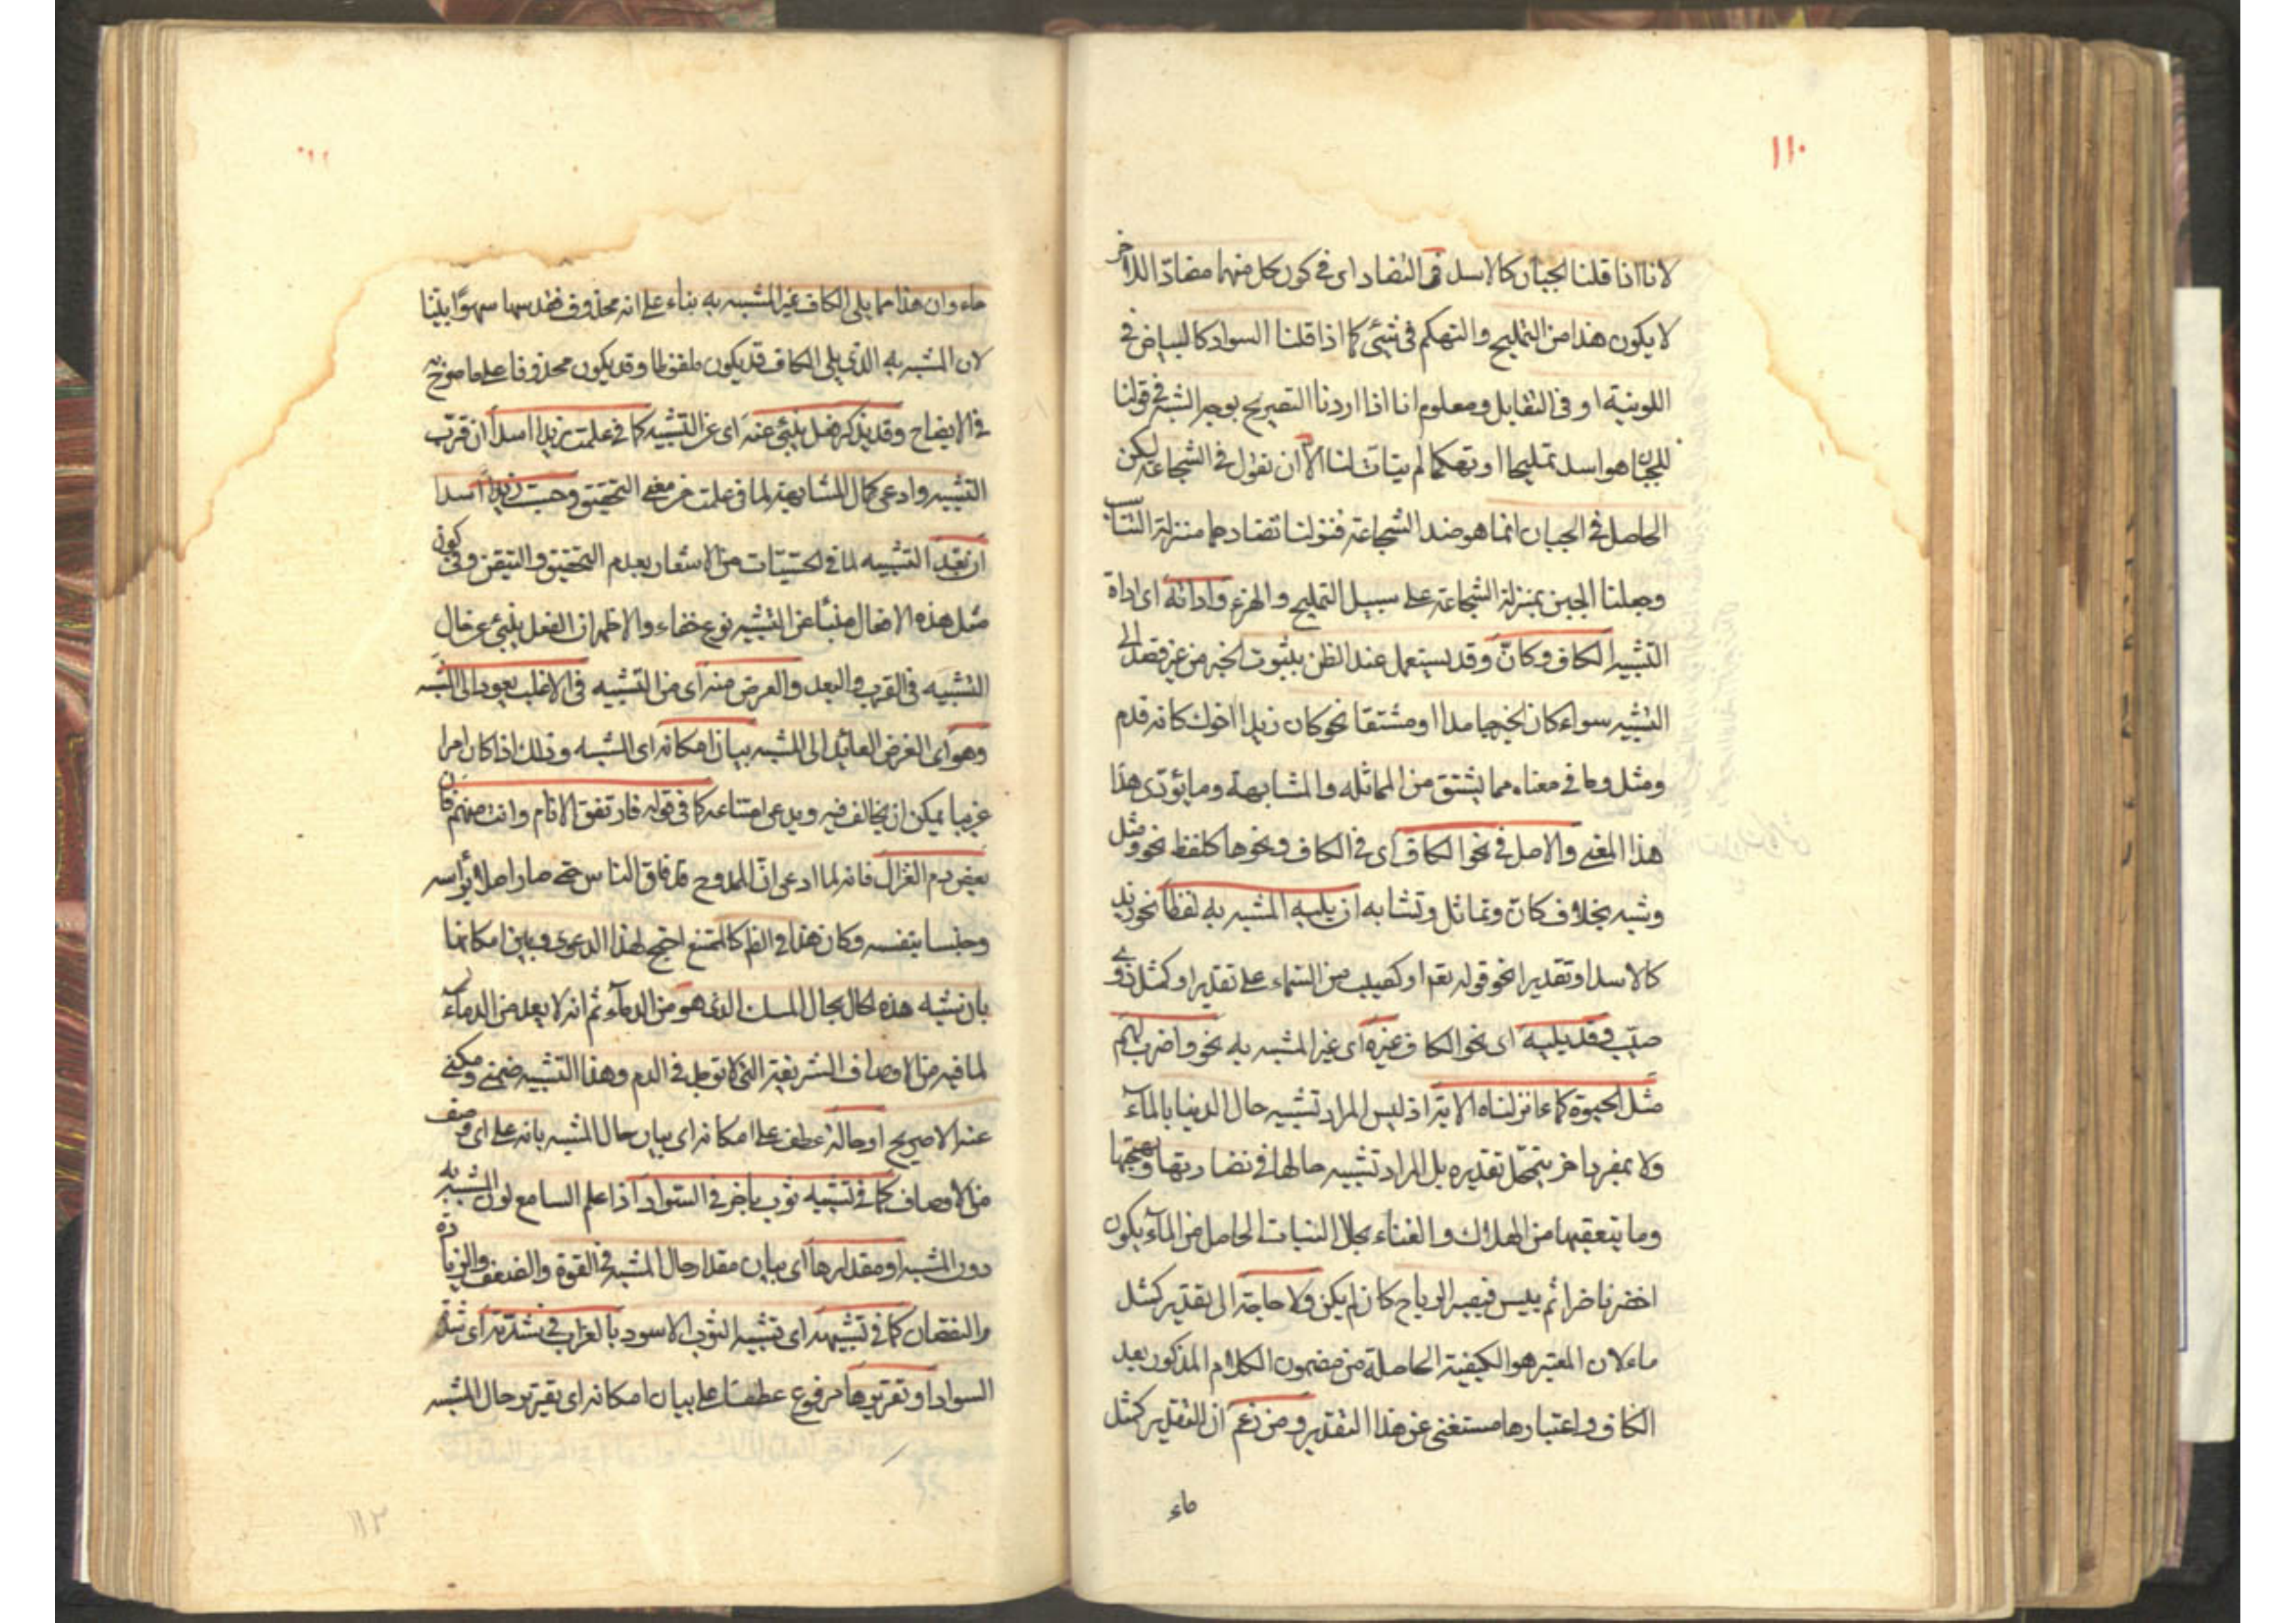 ١١٠
لانا اذا قلنا الجبان كالاسد فى التضاد اى فى كون كل منهما مضادّا للآخر
لا يكون هذا من التمليح والتهكم فى شئ كما اذا قلنا السواد كالبياض فى
اللونية او فى التقابل ومعلوم انا اذا اردنا التصريح بوجه الشبه فى قولنا
للجبان هو اسد تمليحا او تهكما لم يتات لنا الا ان نقول فى الشجاعة لكن
الحاصل فى الجبان انما هو ضد الشجاعة فنزلنا تضادهما منزلة التناسب
وجعلنا الجبن بمنزلة الشجاعة على سبيل التمليح والهزء واداته اى اداة
التشبيه الكاف وكانّ وقد يستعمل عند الظن بثبوت الخبر من غير قصد الى
التشبيه سواء كان الخبر جامدا او مشتقا نحو كان زيدا اخوك كانه قدم
ومثل وما فى معناه مما يشتق من المماثله والمشابهة وما يؤدّى هذا
هذا المعنى والاصل فى نحو الكاف اى فى الكاف ونحوها كلفظ نحو ومثل
وشبه بخلاف كانّ وتماثل وتشابه ان يليه المشبه به لفظا نحو زيد
كالاسد او تقديرا نحو قوله تعه او كصيب من السّماء على تقدير او كمثل ذوى
صيّب وقد يليه اى نحو الكاف غيره اى غير المشبه به نحو واضرب لهم
مثل الحيوة كماء انزلناه الاية اذ ليس المراد تشبيه حال الدنيا بالمآء
ولا بمفرد اخر يتمحّل تقديره بل المراد تشبيه حالها فى نضارتها وبهجتها
وما يتعقبها من الهلاك والفناء بحال النبات الحاصل من المآء يكون
اخضر ناضرا ثم ييبس فيطيره الرياح كان لم يكن ولا حاجة الى تقدير كمثل
ماء لان المعتبر هو الكيفية الحاصلة من مضمون الكلام المذكور بعد
الكاف واعتبارها مستغنى عن هذا التقدير ومن زعم ان التقدير كمثل
ماء
ماء وان هذا مما يلى الكاف غير المشبه به بناء على انه محذوف فقد سها سهوًا بيّنا
لان المشبه به الذى يلى الكاف قد يكون ملفوظا وقد يكون محذوفا على ما صرّح به
فى الايضاح وقد يذكر فعل ينبئ عنه اى عن التشبيه كما فى علمت زيدا اسدا ان قرّب
التشبيه وادعى كمال المشابهة لما فى علمت من معنى التحقيق وحسبت زيدا اسدا
ان بعّد التشبيه لما فى الحسبان من الاشعار بعدم التحقيق والتيقن وفى كون
مثل هذه الافعال منبئا عن التشبيه نوع خفاء والاظهر ان الفعل ينبئ عن حال
التشبيه فى القرب والبعد والغرض منه اى من التشبيه فى الاغلب يعود الى المشبه
وهو اى الغرض العائد الى المشبه بيان امكانه اى المشبه وذلك اذا كان امرا
غريبا يمكن ان يخالف فيه ويدعى امتناعه كما فى قوله فان تفق الانام وانت منهم فان
بعض دم الغزال فانه لما ادعى انّ الممدوح قد فاق الناس حتى صار اصلا براسه
وجنسا بنفسه وكان هذا فى الظاهر كالممتنع احتج لهذا الدعوى وبين امكانها
بان شبه هذه الحال بحال المسك الذى هو من الدماء ثم انه لا يعد من الدماء
لما فيه من الاوصاف الشريفة التى لا توجد فى الدم وهذا التشبيه ضمنى ومكنى
عنه لا صريح او حاله عطف على امكانه اى بيان حال المشبه بانه على اى وصف
من الاوصاف كما فى تشبيه ثوب باخر فى السّواد اذا علم السامع لون المشبه به
دون المشبه او مقدارها اى بيان مقدار حال المشبه فى القوة والضعف والزيادة
والنقصان كما فى تشبيهه اى تشبيه الثوب الاسود بالغراب فى شدّته اى شدّة
السواد او تقريرها مرفوع عطفا على بيان امكانه اى تقرير حال المشبه
١١٢